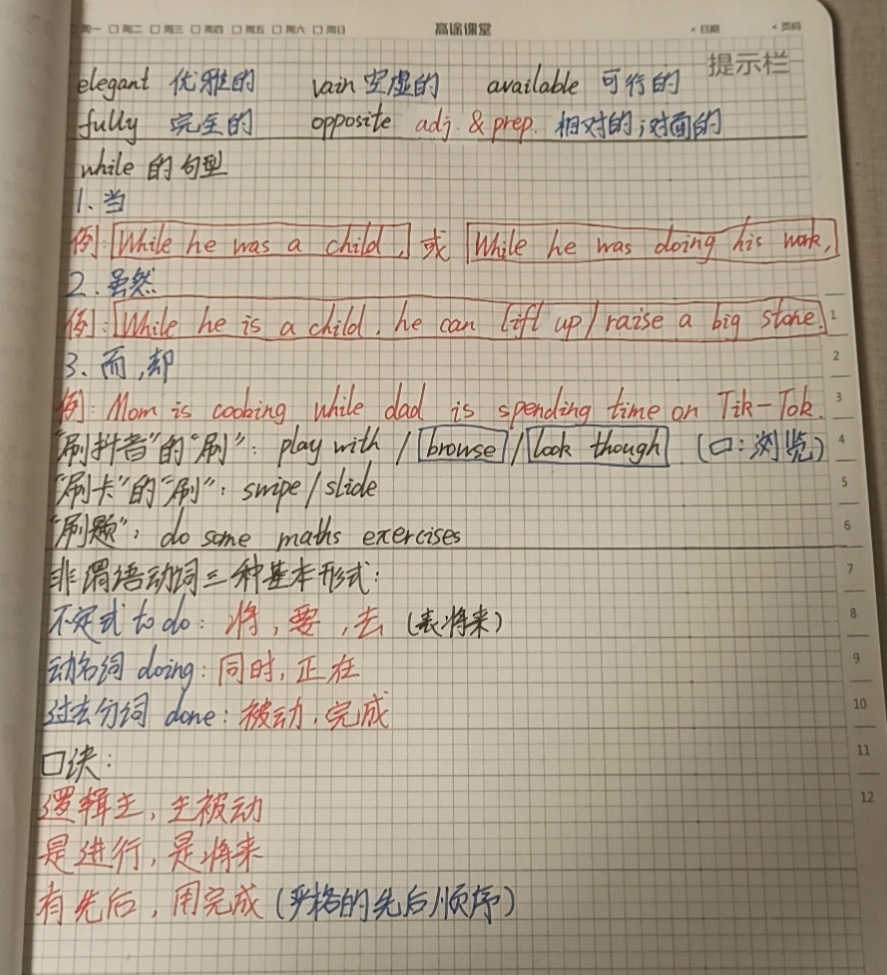 周一 □ 周二 □ 周三 □ 周四 □ 周五 □ 周六 □ 周日 高途课堂 < 日期 < 页码
提示栏
elegant 优雅的 vain 空虚的 available 可行的
fully 完全的 opposite adj. & prep. 相对的;对面的
while 的句型
1、当
例: While he was a child, 或 While he was doing his work,
2、虽然
例: While he is a child, he can lift up/raise a big stone.
3、而,却
例: Mom is cooking while dad is spending time on Tik-Tok.
“刷抖音”的“刷”: play with / browse / look though (口:浏览)
“刷卡”的“刷”: swipe/slide
“刷题”: do some maths exercises
非谓语动词三种基本形式:
不定式 to do: 将,要,去 (表将来)
动名词 doing: 同时,正在
过去分词 done: 被动,完成
口诀:
逻辑主,主被动
是进行,是将来
有先后,用完成 (严格的先后顺序)
1
2
3
4
5
6
7
8
9
10
11
12